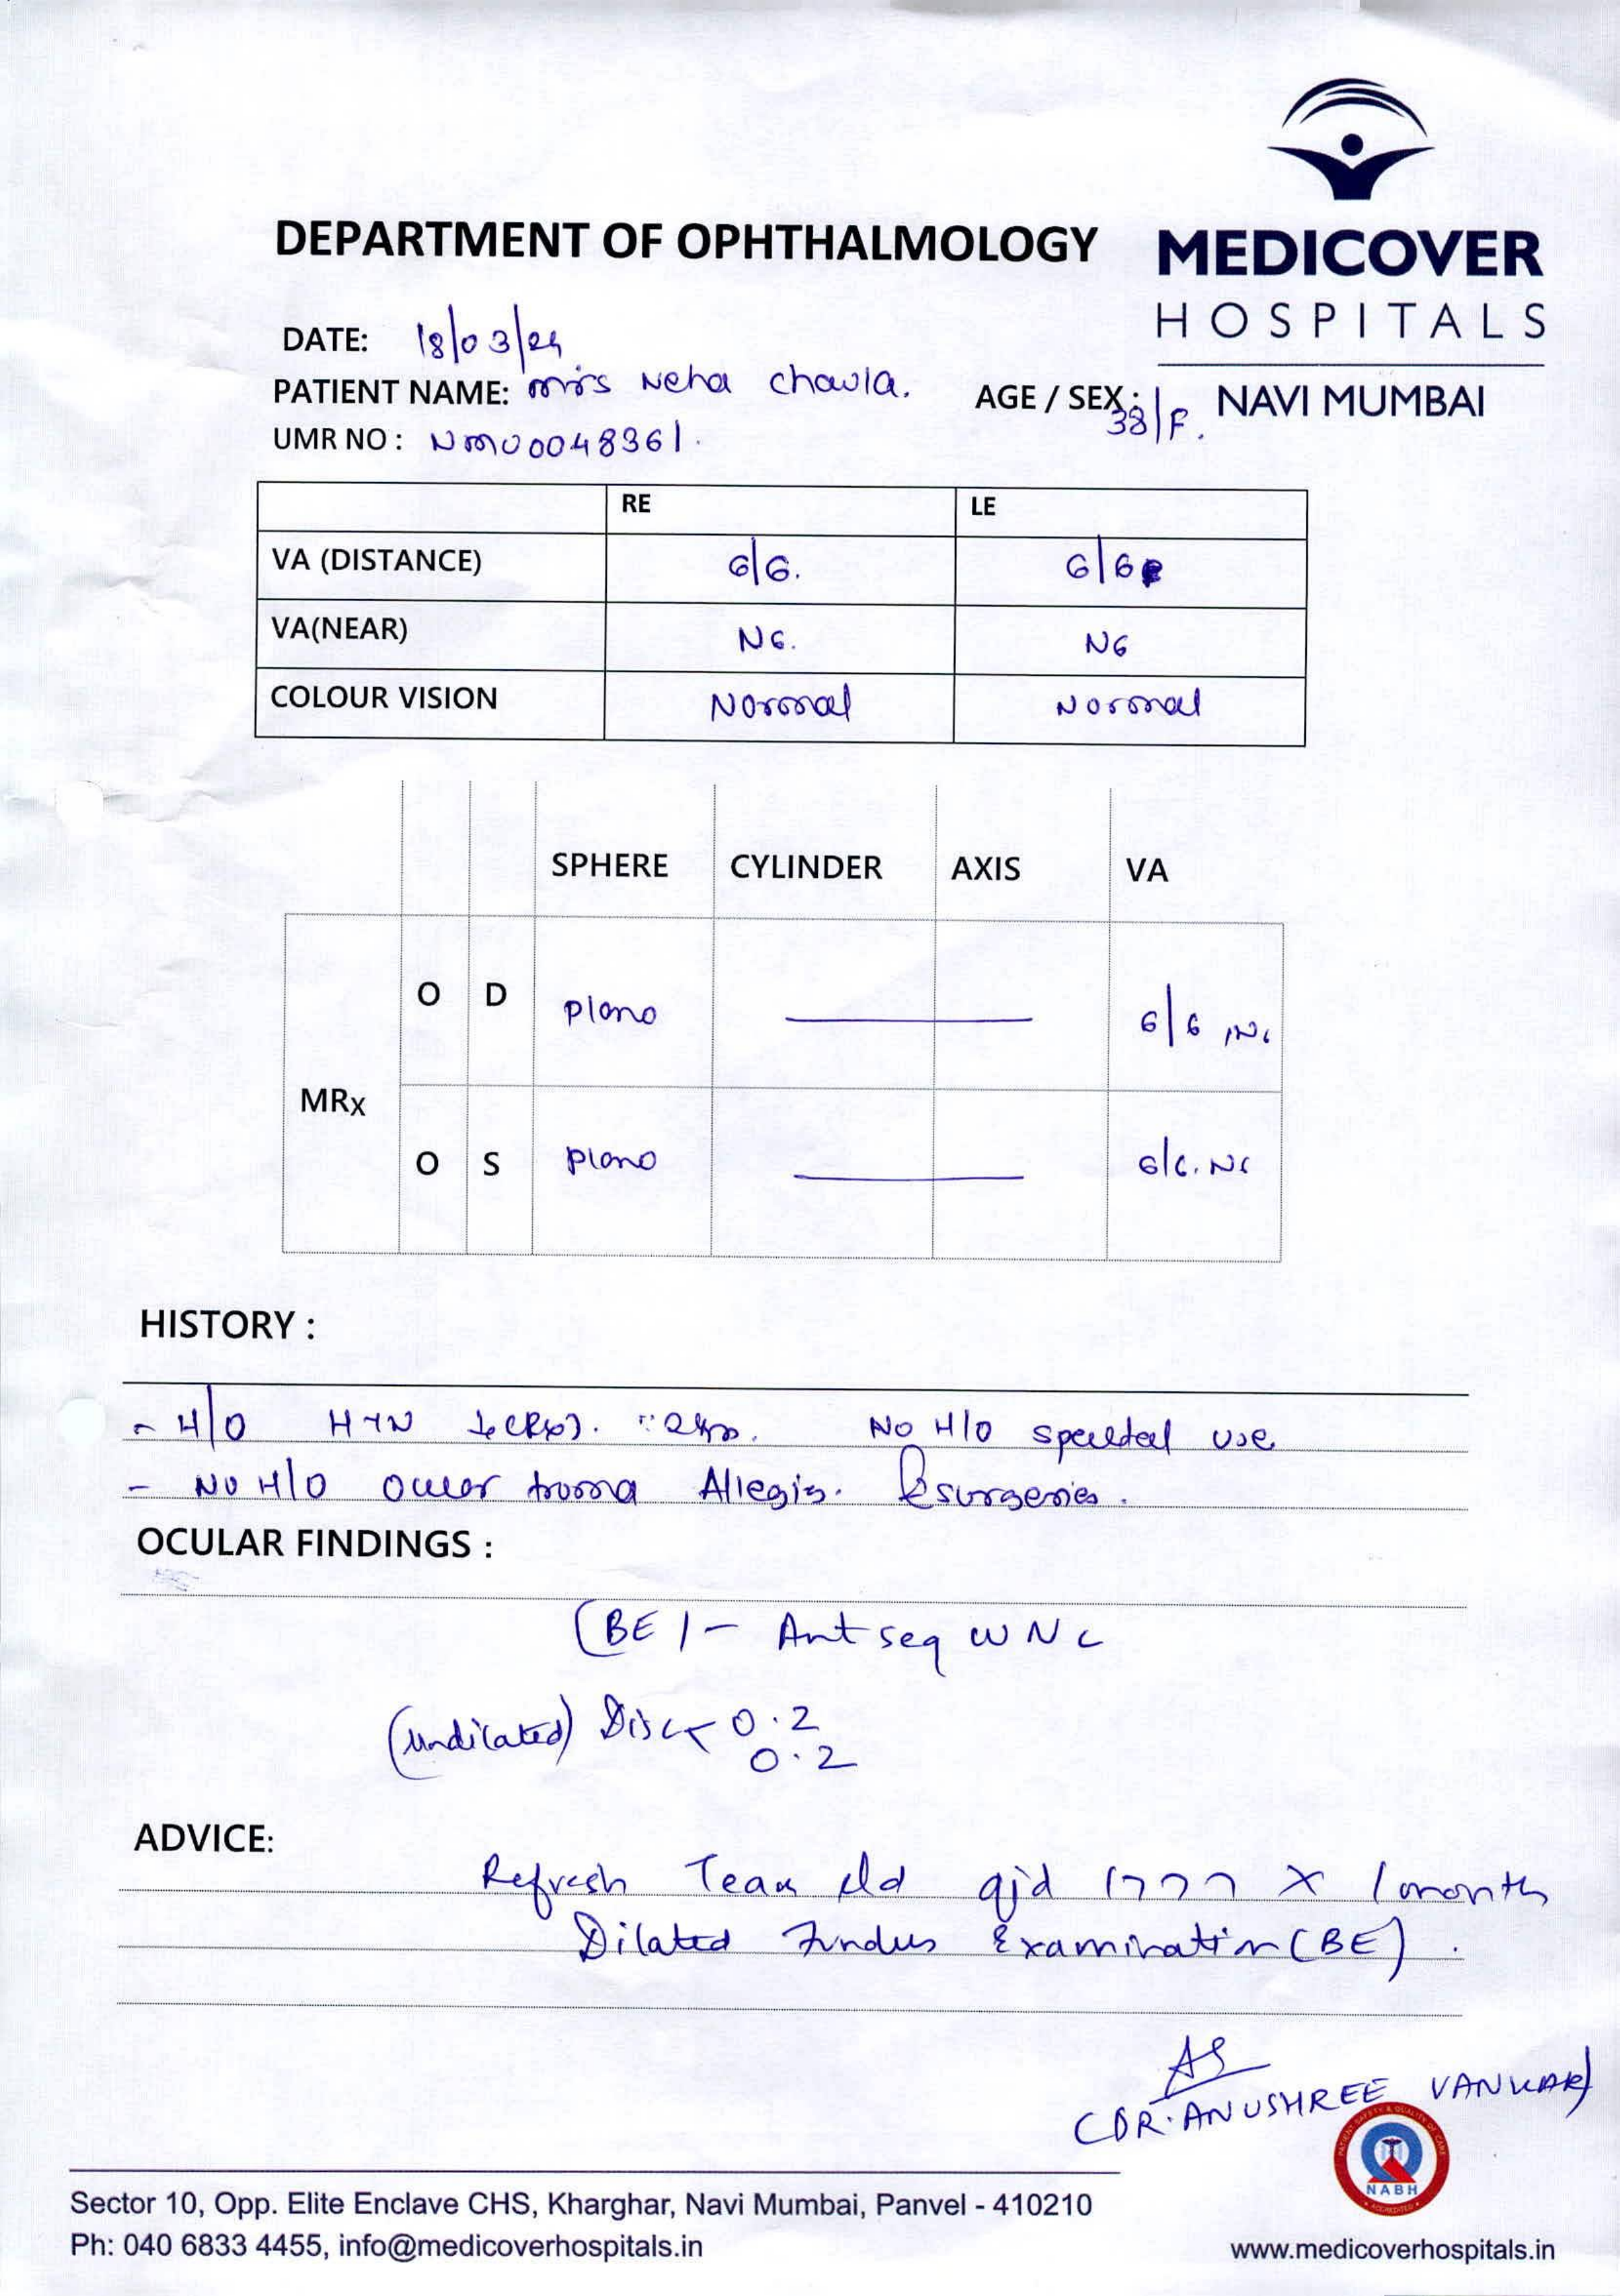 DEPARTMENT OF OPHTHALMOLOGY
MEDICOVER
HOSPITALS
NAVI MUMBAI
DATE: 18/03/24
PATIENT NAME: Mrs Neha Chawla. AGE / SEX: 38/F.
UMR NO: NMU0048361.
RE LE
VA (DISTANCE) 6/6. 6/6
VA(NEAR) N6. N6
COLOUR VISION Normal Normal
SPHERE CYLINDER AXIS VA
O D plano 6/6 N6
MRx
O S plano 6/6. N6
HISTORY :
- H/O HTN No H/O use
- No H/O Allegis. surgeries.
OCULAR FINDINGS :
(BE) - Ant seg WNL
(undilated) Disc 0.2
0.2
ADVICE:
Refresh Tears qid x 1 month
Dilated Fundus Examination (BE).
AS
(DR. ANUSHREE VANKAR)
PATIENT SAFETY & QUALITY OF CARE
NABH
ACCREDITED
Sector 10, Opp. Elite Enclave CHS, Kharghar, Navi Mumbai, Panvel - 410210
Ph: 040 6833 4455, info@medicoverhospitals.in
www.medicoverhospitals.in